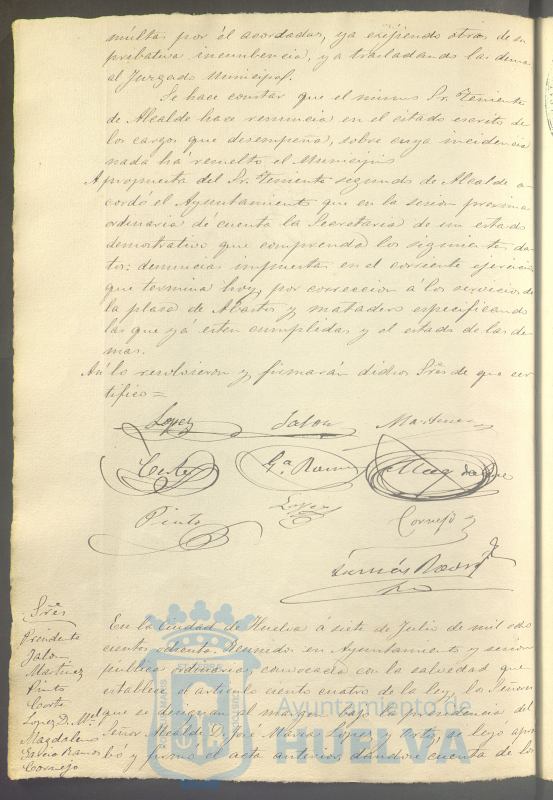 multas por él acordadas, ya exijiendo otras de su
probativa incumbencia, ya trasladando las demas
al Juzgado Municipal.
Se hace constar que el mismo Sr. Teniente
de Alcalde hace renuncia en el citado escrito de
los cargos que desempeña, sobre cuya incidencia
nada há resuelto el Municipio
A propuesta del Sr. Teniente segundo de Alcalde a-
cordó el Ayuntamiento que en la sesion proxima
ordinaria dé cuenta la Secretaria de un estado
demostrativo que comprenda los siguientes da-
tos: denuncias impuestas en el corriente ejercicio
que termina hoy, por correccion á los servicios de
la plaza de Abastos y matadero especificando
las que ya esten cumplidas y el estado de las de
mas.
Asi lo resolvieron y firmarán dichos Sres. de que cer
tifico =
Lopez Jalon Martinez
Corte Gª Ramos Magdaleno
Pinto Lopez Cornejo
Tomás
Sres
Presidente
Jalon
Martinez
Pinto
Corte
Lopez D. Ml.
Magdaleno
Garcia Ramos
Cornejo
En la Ciudad de Huelva á siete de Julio de mil ocho
cientos ochenta. Reunido en Ayuntamiento y sesion
pública ordinaria, convocada con la salvedad que
establece el articulo ciento cuatro de la ley, los Señores
que se designan al margen bajo la presidencia del
Señor Alcalde D. José Maria López y Corto, se leyó apro
bó y firmó el acta anterior, dándose cuenta de los
Ayuntamiento de
HUELVA